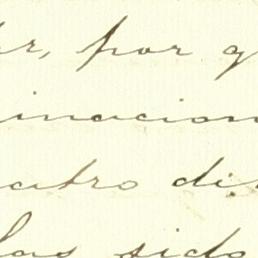 er, por q
inacion
atro di
las sido